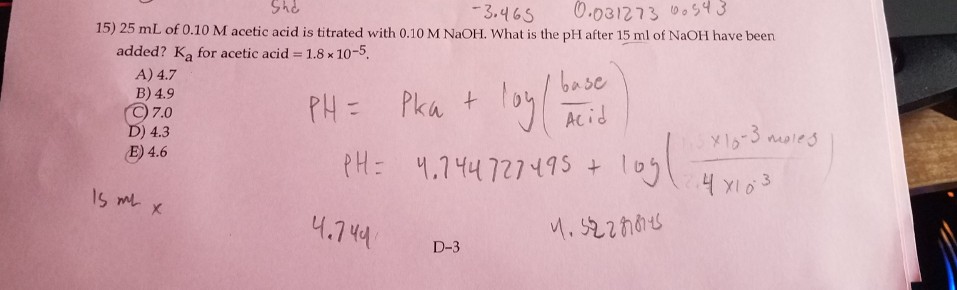 Shd -3.465 0.031273
15) 25 mL of 0.10 M acetic acid is titrated with 0.10 M NaOH. What is the pH after 15 ml of NaOH have been
added? Ka for acetic acid = 1.8 × 10-5.
A) 4.7
B) 4.9
C) 7.0
D) 4.3
E) 4.6
PH = Pka + log ( base
Acid )
PH = 4.744727495 + log ( x10-3 moles
4 x10-3 )
15 mL x
4.744
D-3